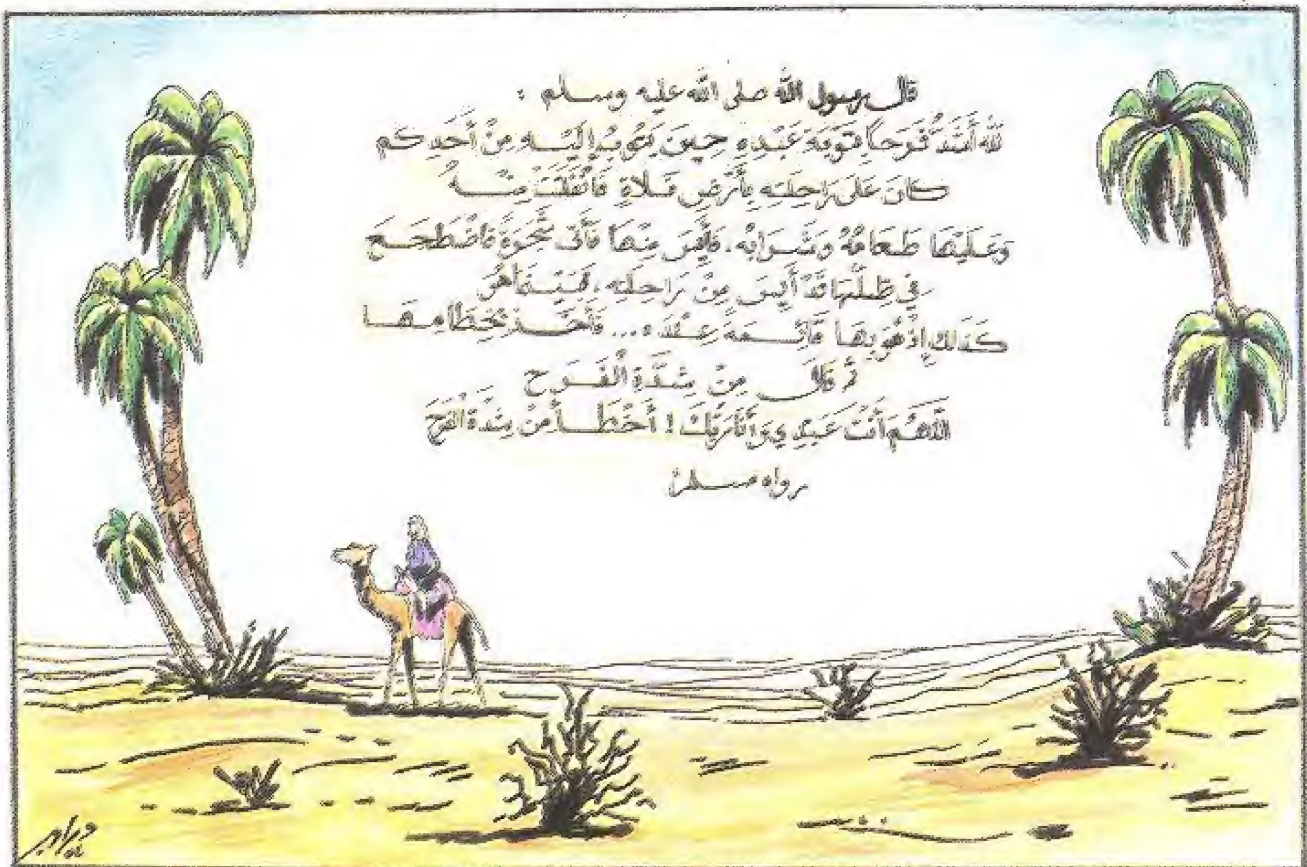 قال رسول الله صلى الله عليه وسلم :
لله أشد فرحاً بتوبة عبده حين يتوب إليه من أحدكم
كان على راحلته بأرض فلاة فانفلتت منه
وعليها طعامه وشرابه، فأيس منها فأتى شجرة فاضطجع
في ظلها قد أيس من راحلته، فبينما هو
كذلك إذ هو بها قائمة عنده... فأخذ بخطامها
ثم قال من شدة الفرح
اللهم أنت عبدي وأنا ربك! أخطأ من شدة الفرح
رواه مسلم